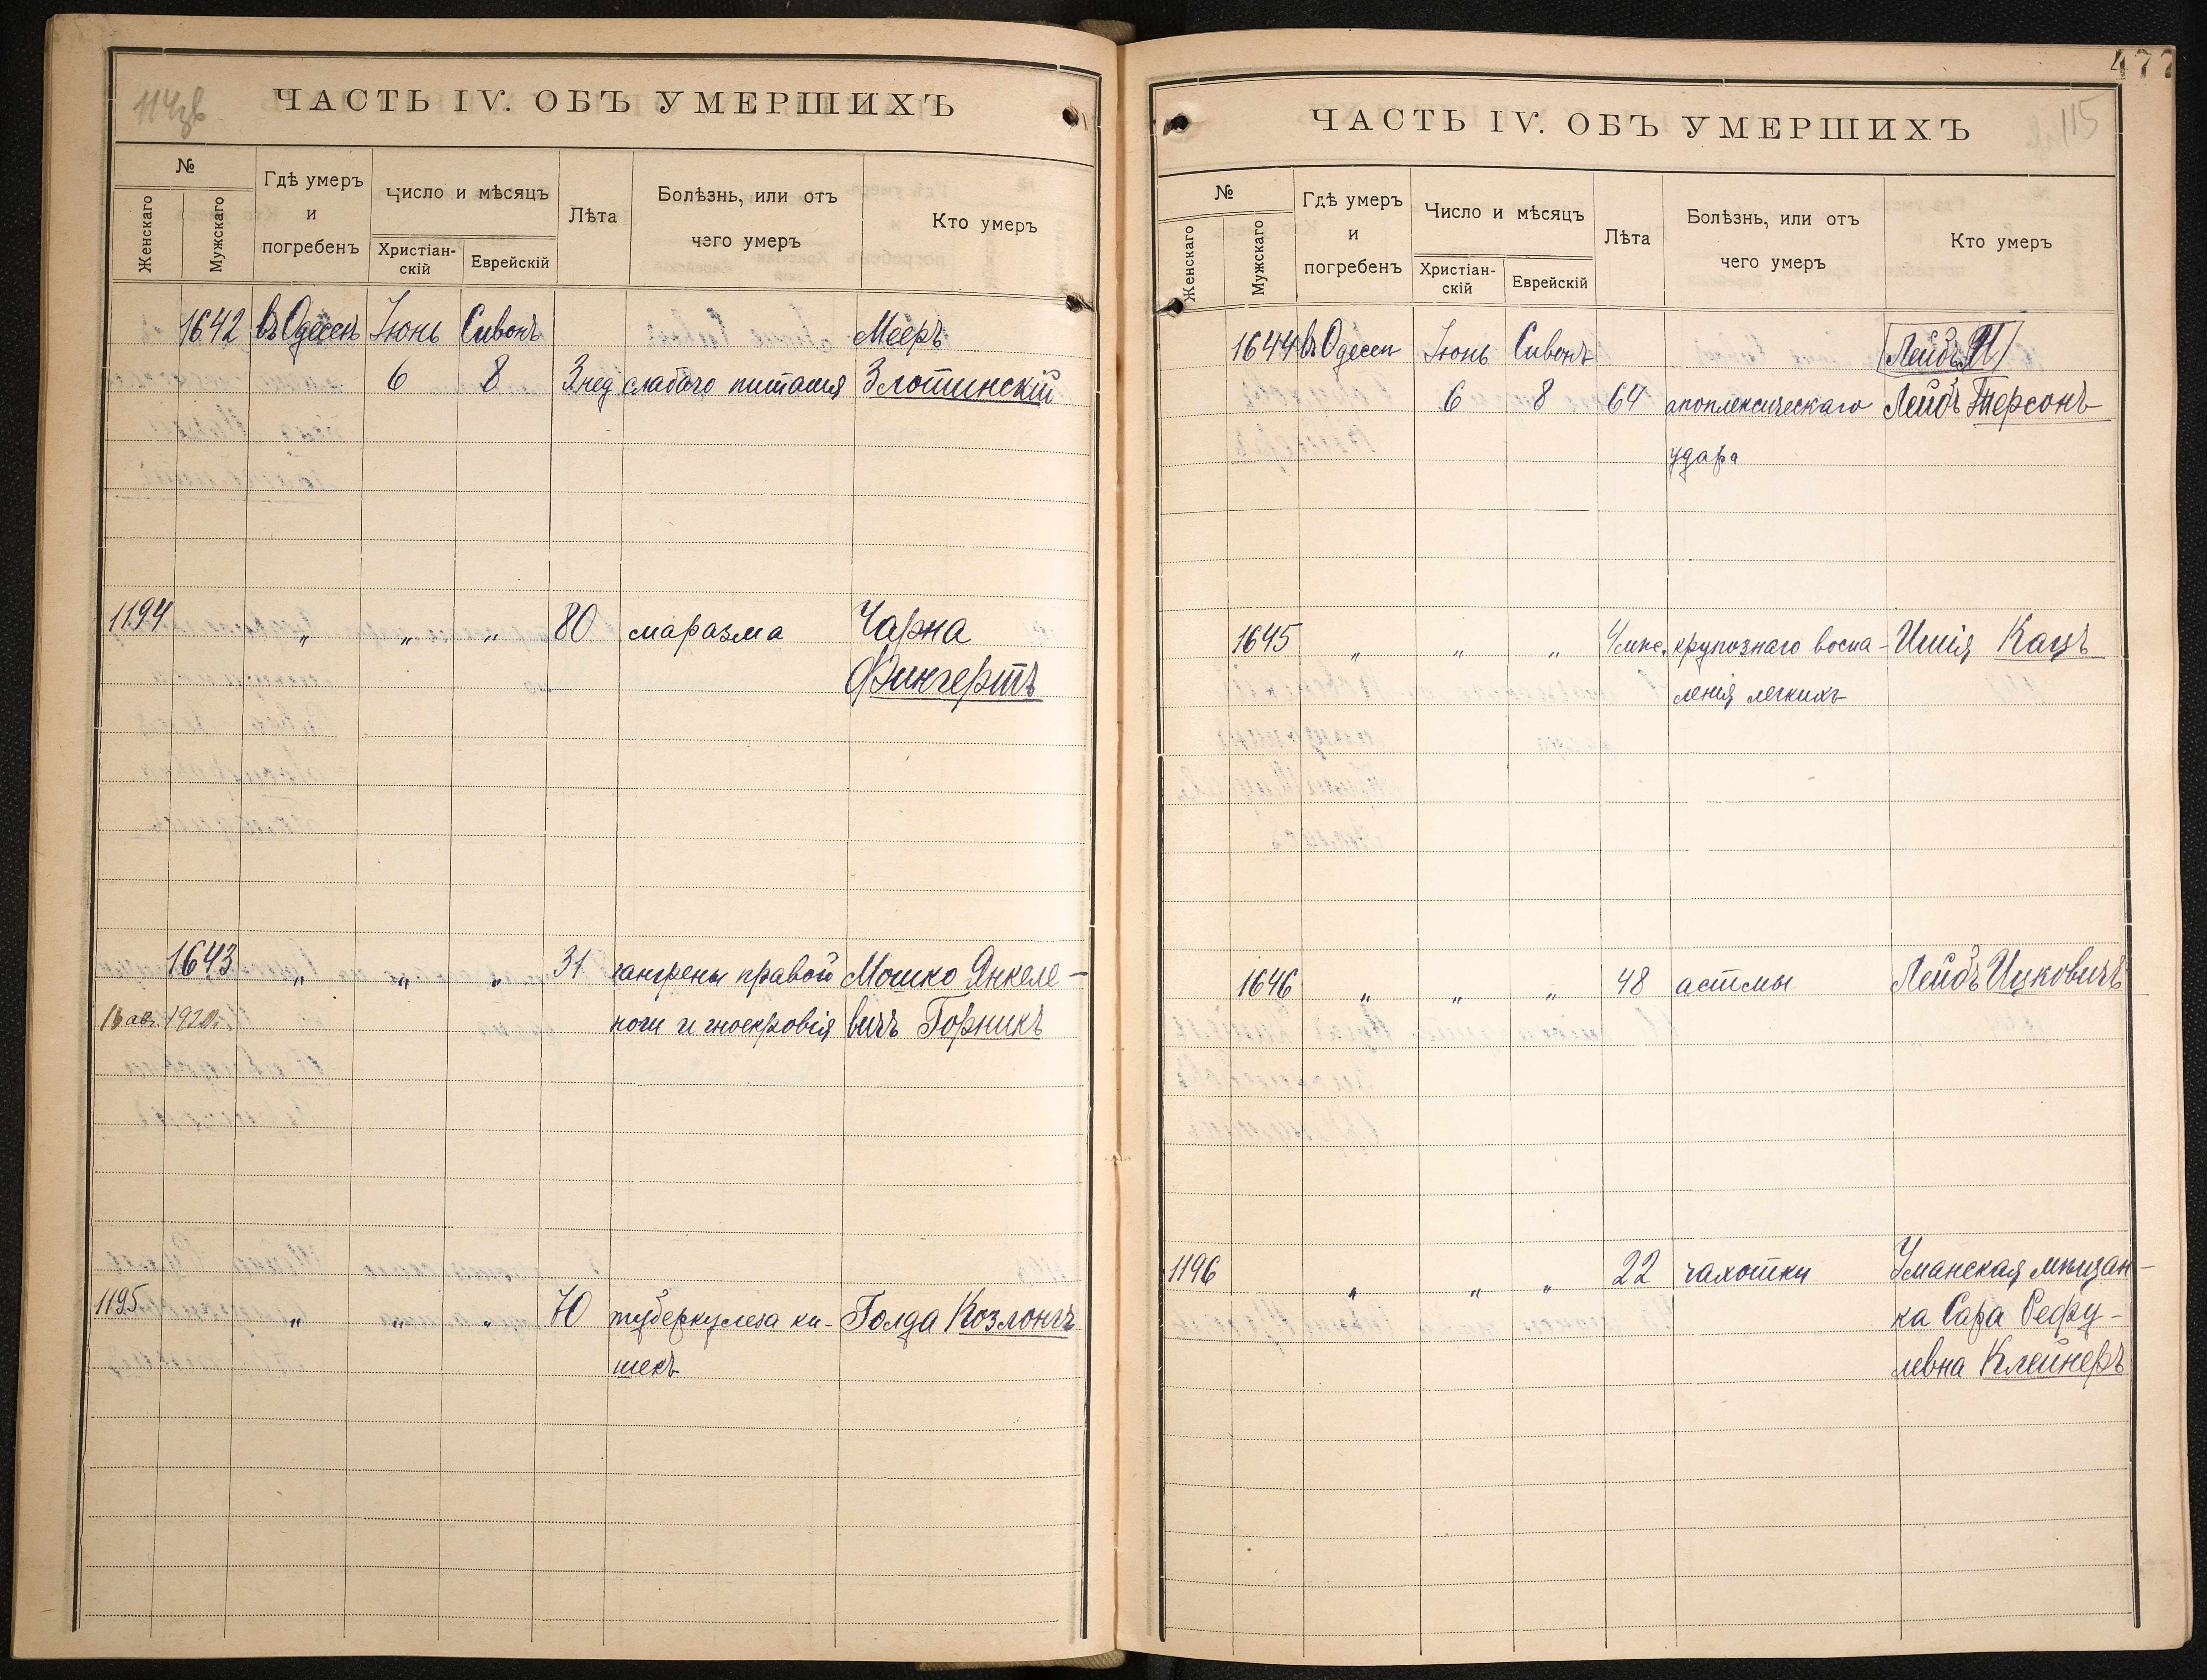 114зв
ЧАСТЬ IV. ОБЪ УМЕРШИХЪ
№
Женскаго
Мужскаго
Гдѣ умеръ
и
погребенъ
Число и мѣсяцъ
Христіан-
скій
Еврейскій
Лѣта
Болѣзнь, или отъ
чего умеръ
Кто умеръ
1642 въ Одессѣ Іюнь Сивонъ Мееръ
6 8 3 нед слабаго питания Злотинскій
1194 „ „ „ 80 маразма Чарна
Фингертъ
1643 „ „ „ 31 гангрены правой Мошко Янкеле-
авг. 1920 г. ноги и гноекровія вичъ Горникъ
1195 „ „ „ 70 туберкулеза ки- Голда Козлонгъ
шекъ
477
115
ЧАСТЬ IV. ОБЪ УМЕРШИХЪ
№
Женскаго
Мужскаго
Гдѣ умеръ
и
погребенъ
Число и мѣсяцъ
Христіан-
скій
Еврейскій
Лѣта
Болѣзнь, или отъ
чего умеръ
Кто умеръ
1644 въ Одессѣ Іюнь Сивонъ Лейбъ
6 8 64 апоплексическаго Лейбъ Терсонъ
удара
1645 „ „ „ 4 мѣс. крупознаго воспа- Ишія Кацъ
ленія легкихъ
1646 „ „ „ 48 астмы Лейбъ Ицковичъ
1196 „ „ „ 22 чахотки Уманская мѣщан-
ка Сара Рефу-
левна Клейнеръ